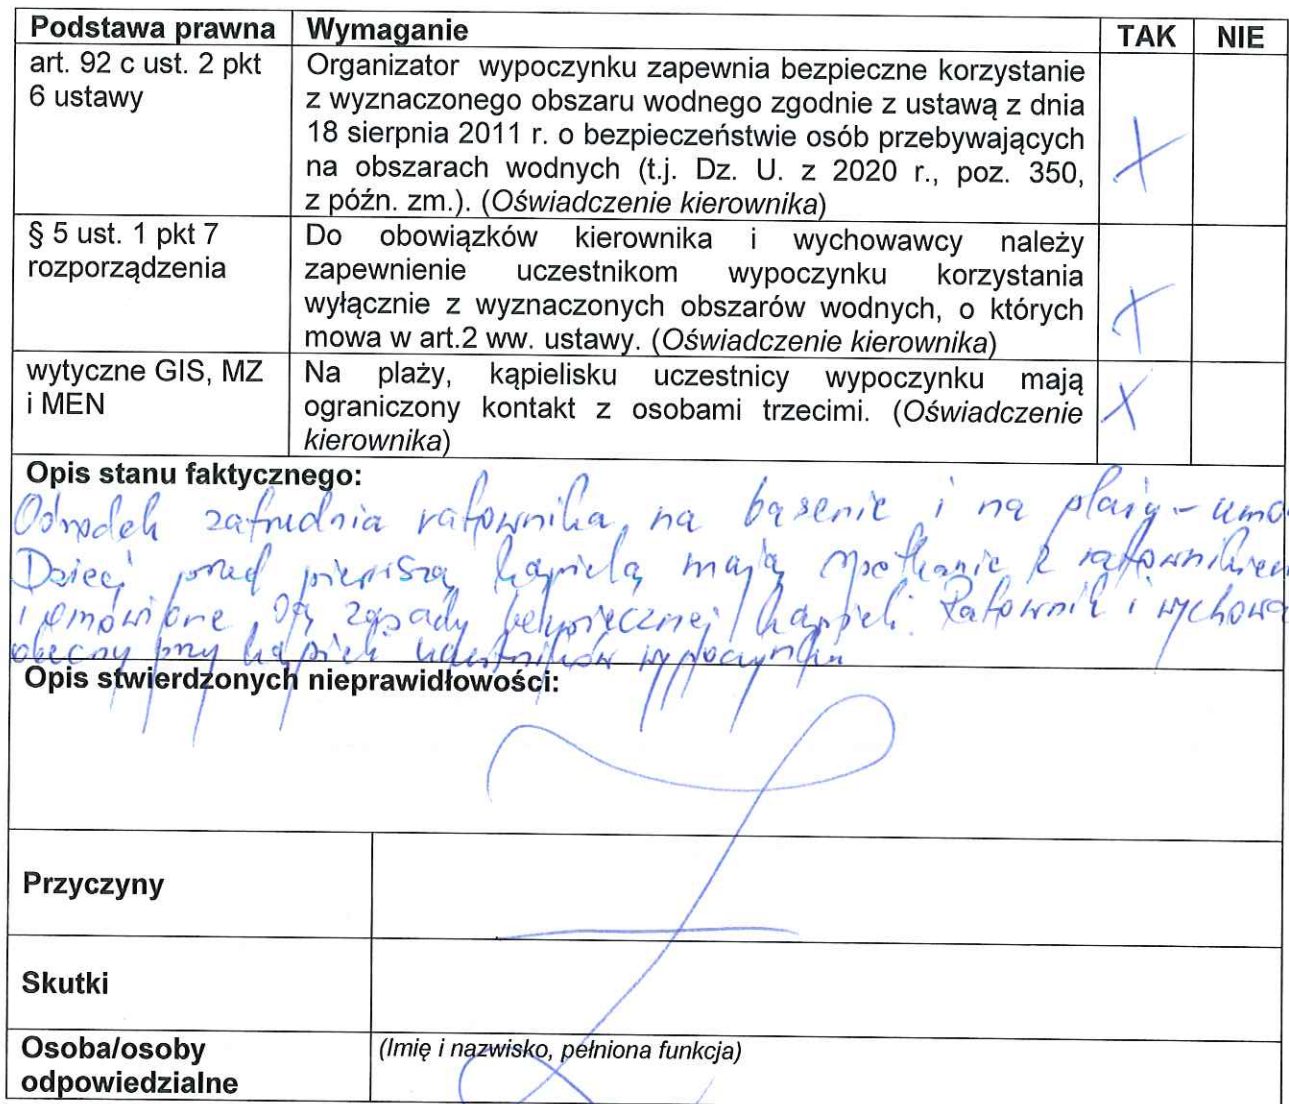 Podstawa prawna Wymaganie TAK NIE
art. 92 c ust. 2 pkt
6 ustawy
Organizator wypoczynku zapewnia bezpieczne korzystanie
z wyznaczonego obszaru wodnego zgodnie z ustawą z dnia
18 sierpnia 2011 r. o bezpieczeństwie osób przebywających
na obszarach wodnych (t.j. Dz. U. z 2020 r., poz. 350,
z późn. zm.). (Oświadczenie kierownika)
X
§ 5 ust. 1 pkt 7
rozporządzenia
Do obowiązków kierownika i wychowawcy należy
zapewnienie uczestnikom wypoczynku korzystania
wyłącznie z wyznaczonych obszarów wodnych, o których
mowa w art.2 ww. ustawy. (Oświadczenie kierownika)
X
wytyczne GIS, MZ
i MEN
Na plaży, kąpielisku uczestnicy wypoczynku mają
ograniczony kontakt z osobami trzecimi. (Oświadczenie
kierownika)
X
Opis stanu faktycznego:
Ośrodek zatrudnia ratownika na basenie i na plaży - umo
Dzieci przed pierwszą kąpielą mają spotkanie z ratownikiem
i omówione są zasady bezpiecznej kąpieli. Ratownik i wychowa
obecny przy kąpieli uczestników wypoczynku
Opis stwierdzonych nieprawidłowości:
Przyczyny
Skutki
Osoba/osoby
odpowiedzialne
(Imię i nazwisko, pełniona funkcja)